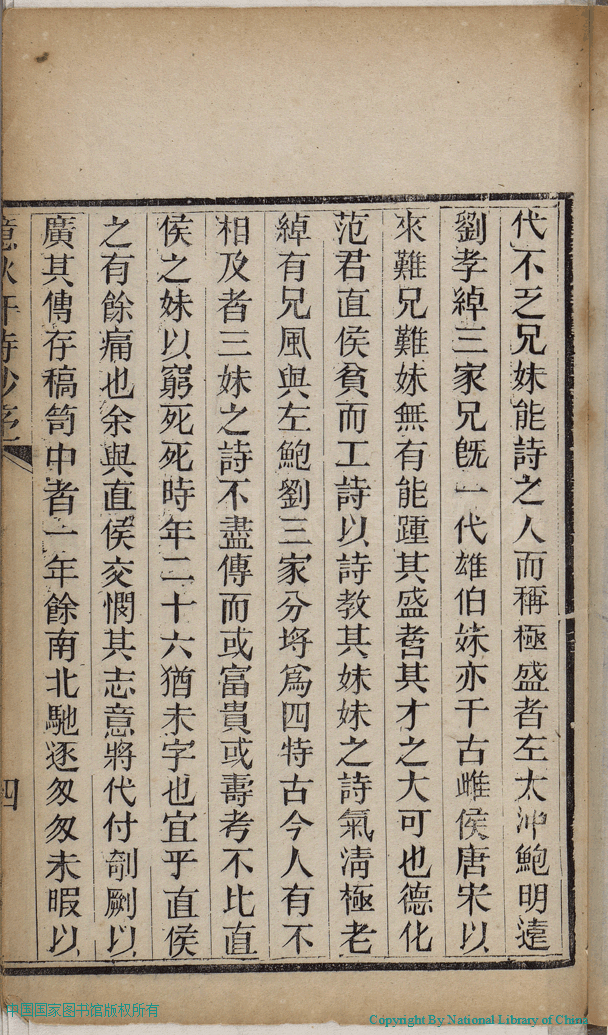 代不乏兄妹能詩之人而稱極盛者左太沖鮑明遠
劉孝綽三家兄旣一代雄伯妹亦千古雌侯唐宋以
來難兄難妹無有能踵其盛者其才之大可也德化
范君直侯貧而工詩以詩教其妹妹之詩氣清極老
綽有兄風與左鮑劉三家分埒爲四特古今人有不
相及者三妹之詩不盡傳而或富貴或壽考不比直
侯之妹以窮死死時年二十六猶未字也宜乎直侯
之有餘痛也余與直侯交憫其志意將代付剞劂以
廣其傳存稿笥中者一年餘南北馳逐匆匆未暇以
詩鈔序
四
中国国家图书馆版权所有
Copyright By National Library of China